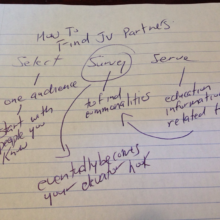 How To
Find JV Partners
Select
Survey
Serve
one audience
start with
people you
know
to find
commonalities
education
information
related t
eventually becomes
your elevator hook